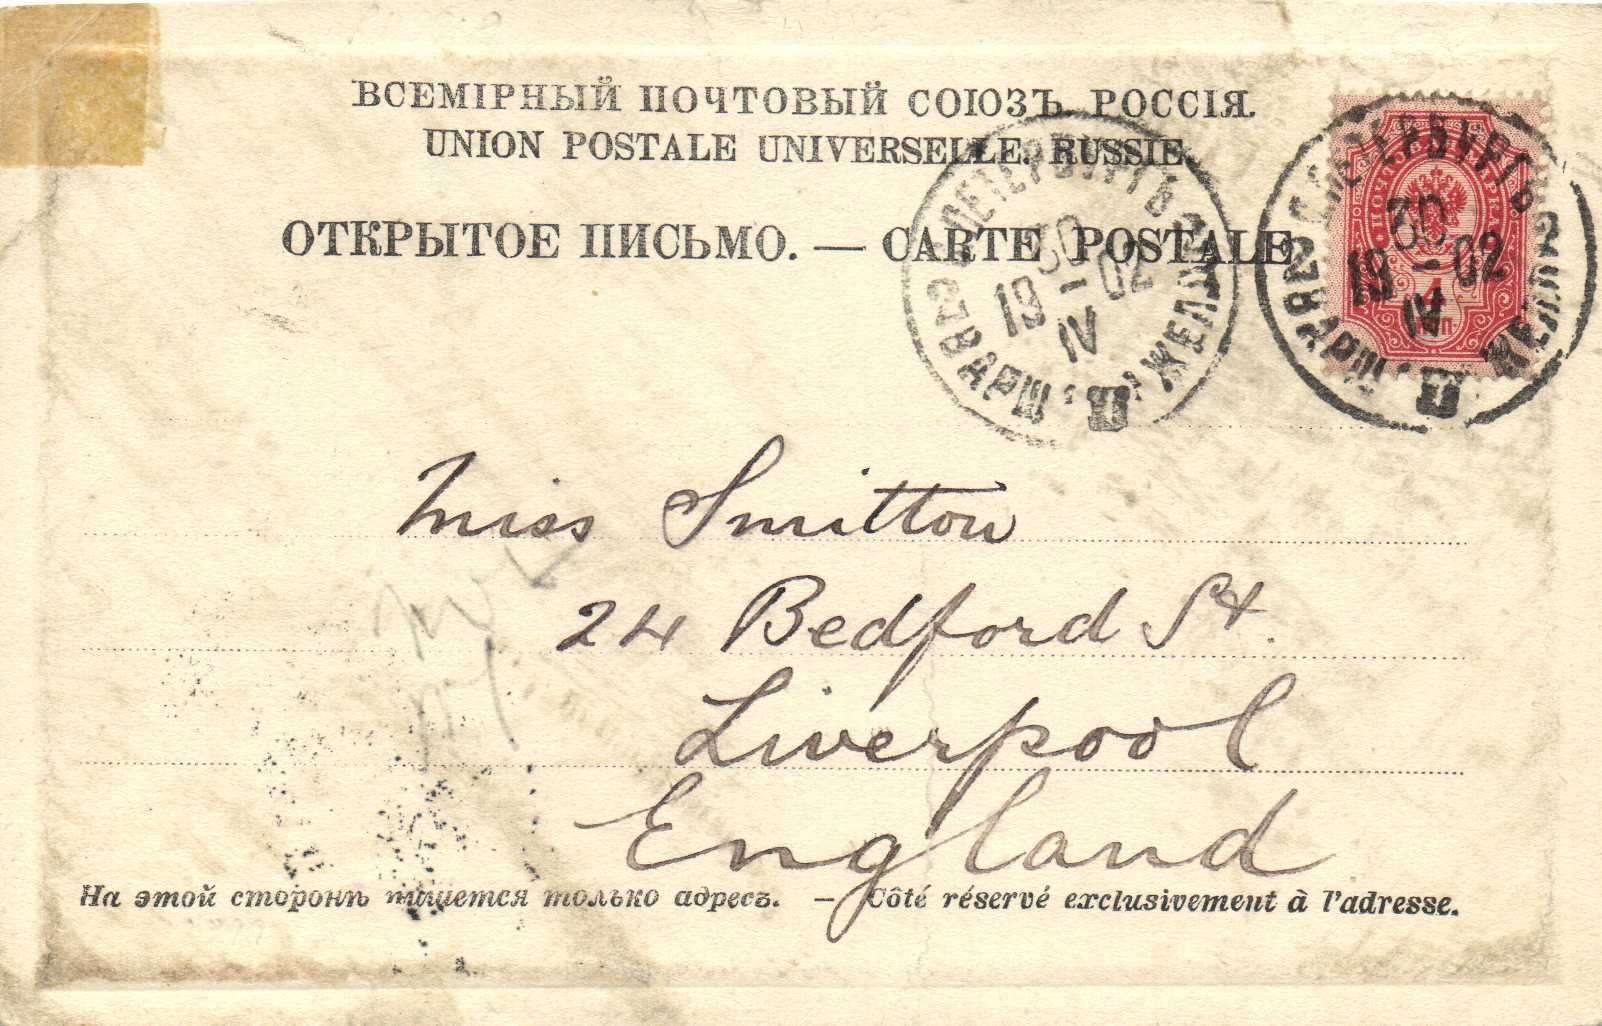 ВСЕМІРНЫЙ ПОЧТОВЫЙ СОЮЗЪ. РОССІЯ.
UNION POSTALE UNIVERSELLE. RUSSIE.
ОТКРЫТОЕ ПИСЬМО. — CARTE POSTALE
С.ПЕТЕРБУРГЪ
30
19 – 02
IV
ВАРШ. ЖЕЛ.
С.ПЕТЕРБУРГЪ
30
19 – 02
IV
ВАРШ. ЖЕЛ.
ПОЧТОВ МАРКА
4
КОП
Miss Smitton
24 Bedford St.
Liverpool
England
На этой сторонѣ пишется только адресъ. — Côté réservé exclusivement à l'adresse.